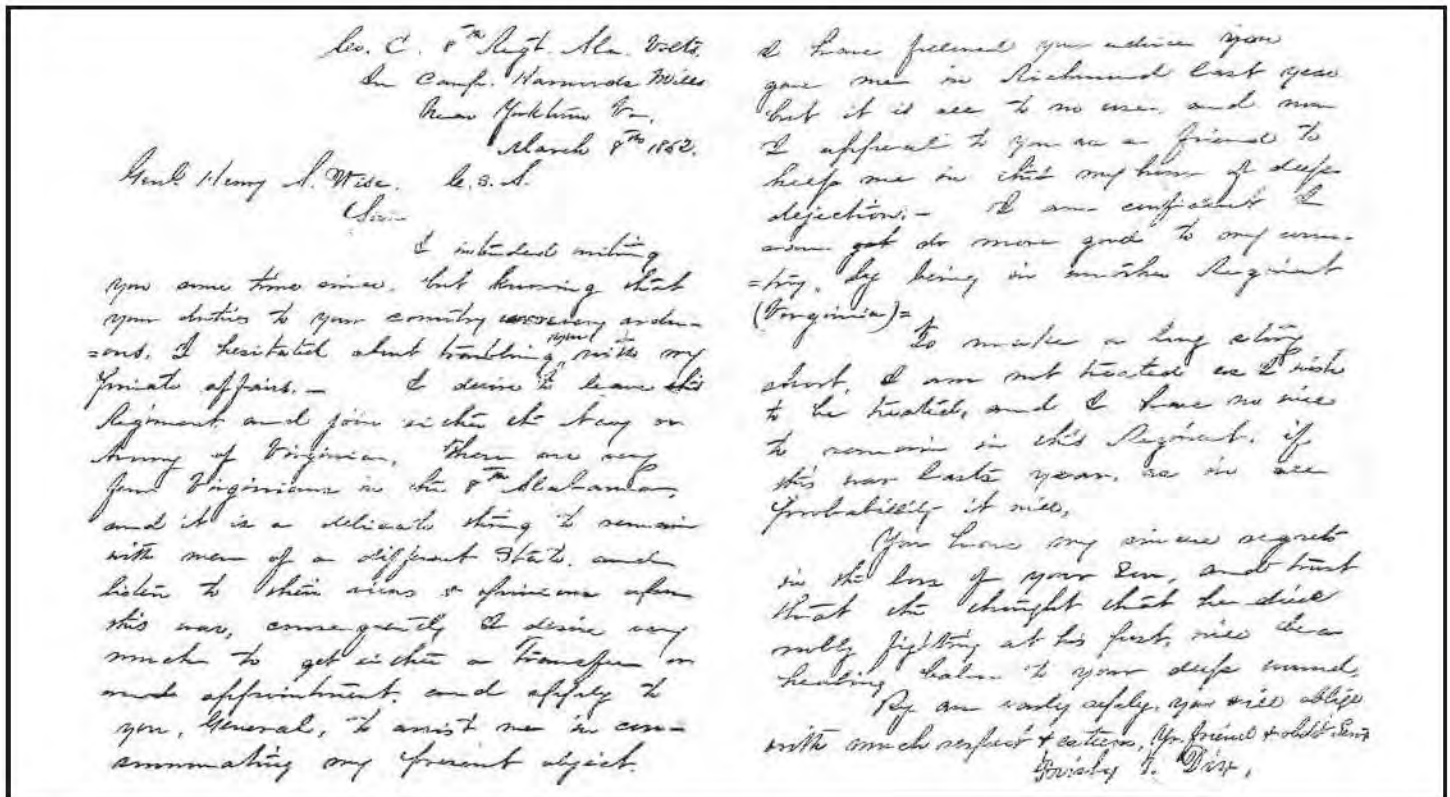 Co. C. 8th Regt. Ala. Volts.
In Camp. Harwoods Mills
Near Yorktown Va.
March 8th 1862.
Genl. Henry A. Wise. C.S.A.
Sir
I intended writing
you some time since, but knowing that
your duties to your country were very ardu-
=ous, I hesitated about troubling you with my
private affairs.- I desire to leave this
Regiment and join either the Navy or
Army of Virginia, There are very
few Virginians in the 8th Alabama,
and it is a delicate thing to remain
with men of a different State. and
listen to their views & opinions upon
this war, consequently I desire very
much to get either a transfer or
appointment. and apply to
you, General, to assist me in con-
summating my present object.
I have followed your advice you
gave me in Richmond last year
but it is all to no use. and now
I appeal to you as a friend to
help me in this my hour of deep
dejection.- I am confident I
can do more good to my coun-
=try, by being in another Regiment
(Virginia)=
To make a long story
short, I am not treated as I wish
to be treated, and I have no
to remain in this Regiment, if
this war lasts years, as in all
probability it will,
You have my sincere regrets
in the loss of your Son, and trust
that the thought that he died
nobly fighting at his post, will be a
healing balm to your deep wound,
By an early reply, you will oblige
with much respect & esteem, Yr. friend & obdt. Servt
T. Dix,